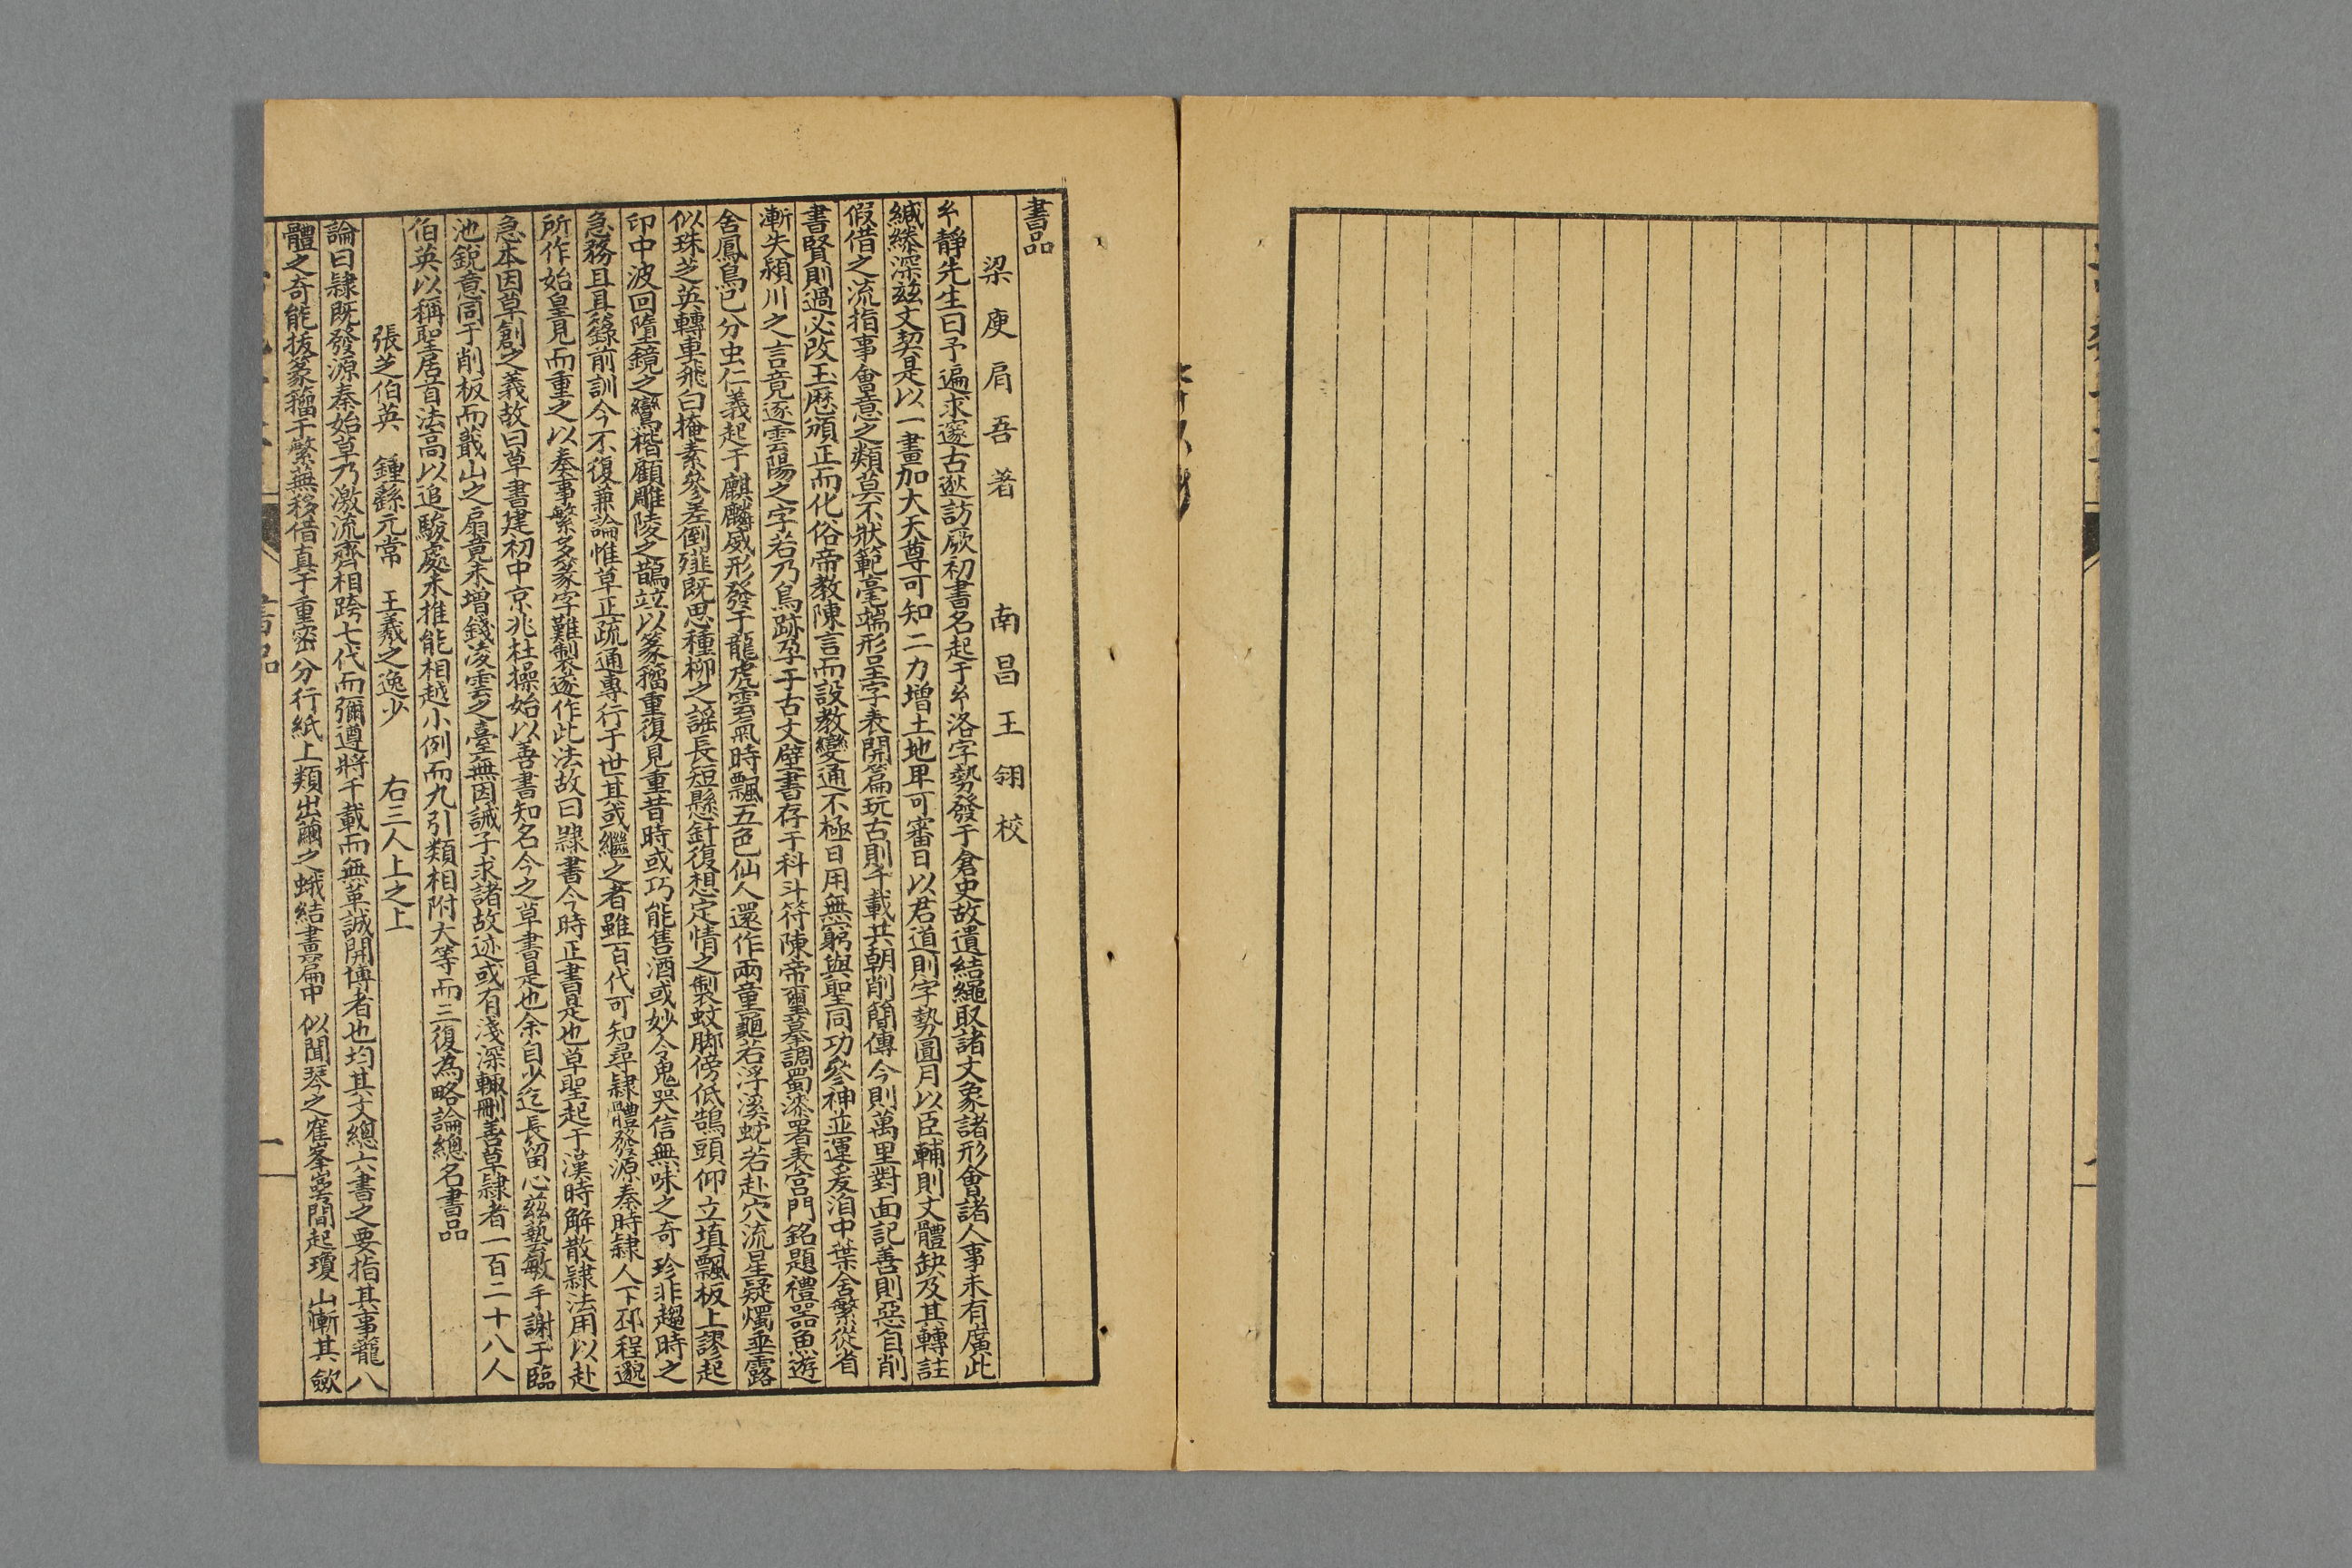 書品
梁庾肩吾著　南昌王翎校
𢆯靜先生曰予遍求邃古逖訪厥初書名起于𢆯洛字勢發于倉史故遺結繩取諸文象諸形會諸人事未有廣此
緘縢深茲文契是以一畫加大天尊可知二力增土地卑可審日以君道則字勢圓月以臣輔則文體缺及其轉註
假借之流指事會意之類莫不狀範毫端形呈字表開篇玩古則千載共朝削簡傳今則萬里對面記善則惡自削
書賢則過必改玉歷頒正而化俗帝教陳言而設教變通不極日用無窮與聖同功參神並運爰洎中葉舍繁從省
漸失潁川之言竟逐雲陽之字若乃鳥跡孕于古文壁書存于科斗符陳帝璽摹調蜀漆署表宮門銘題禮器魚遊
舍鳳鳥已分虫仁義起于麒麟威形發于龍虎雲氣時飄五色仙人還作兩童龜若浮溪蛇若赴穴流星疑燭垂露
似珠芝英轉車飛白掩素參差倒薤既思種柳之謠長短懸針復想定情之製蚊脚傍低鵠頭仰立填飄板上謬起
印中波回墮鏡之鸞楷顧雕陵之鵲竝以篆籀重復見重昔時或巧能售酒或妙令鬼哭信無味之奇珍非趨時之
急務且具錄前訓今不復兼論惟草正疏通專行于世其或繼之者雖百代可知尋隸體發源秦時隸人下邳程邈
所作始皇見而重之以奏事繁多篆字難製遂作此法故曰隸書今時正書是也草聖起于漢時解散隸法用以赴
急本因草創之義故曰草書建初中京兆杜操始以善書知名今之草書是也余自少迄長留心茲藝敏手謝于臨
池銳意同于削板而蕺山之扇竟未增錢凌雲之臺無因誡子求諸故迹或有淺深輒刪善草隸者一百二十八人
伯英以稱聖居首法高以追駿處末推能相越小例而九引類相附大等而三復為略論總名書品
張芝伯英　鍾繇元常　王羲之逸少　右三人上之上
論曰隸既發源秦始草乃激流齊相跨七代而彌遵將千載而無革誠開博者也均其文總六書之要指其事籠八
體之奇能拔篆籀于繁蕪移借真于重密分行紙上類出繭之蛾結畫篇中似聞琴之窟峯崿間起瓊山慚其歛
書品
一